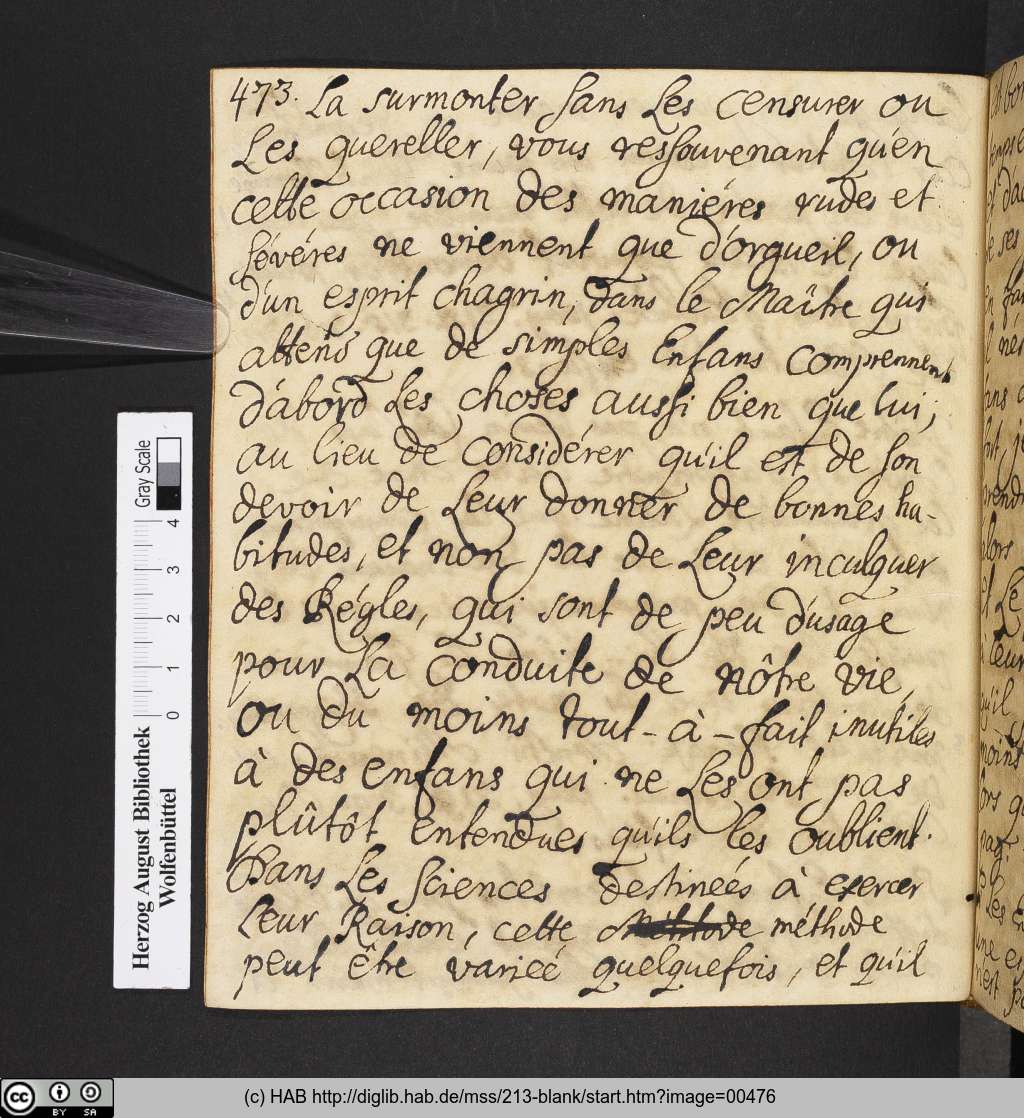 473. La surmonter sans Les censurer ou
Les quereller, vous ressouvenant qu'en
cette occasion des maniéres rudes et
sévéres ne viennent que d'orgueil, ou
d'un esprit chagrin, dans le Maître qui
attens que de simples Enfans comprennent
d'abord Les choses aussi bien que lui,
au lieu de considérer qu'il est de son
devoir de Leur donner de bonnes ha-
bitudes, et non pas de Leur inculquer
des Régles, qui sont de peu d'usage
pour La conduite de nôtre vie,
ou du moins tout-à-fait inutiles
à des enfans qui ne Les ont pas
plûtôt entendues qu'ils les oublient.
Dans Les Sciences destinées à exercer
Leur Raison, cette Méthode méthode
peut être variée quelquefois, et qu'il
Herzog August Bibliothek
Wolfenbüttel
Gray Scale
0 1 2 3 4
cc BY SA
(c) HAB http://diglib.hab.de/mss/213-blank/start.htm?image=00476